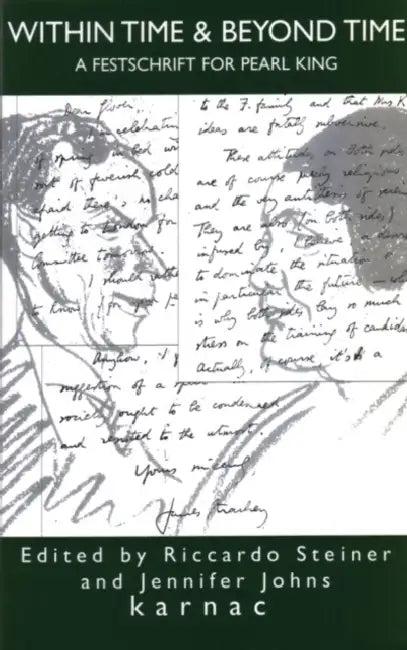 WITHIN TIME & BEYOND TIME
A FESTSCRIPT FOR PEARL KING
Dear Glover,
in celebrating
of spring
sort of feverish cold
afraid there's no cha
getting to London for
Committee tomorrow.
I should
to know
Anyhow,
suggestion of a
society ought to be condemned
and resisted to the utmost.
Yours sincerely
James Strachey
to the F. family and that Mrs K
ideas are fatally subversive.
These attitudes on both sides
are of course purely religious
and the very antithesis of
They are also (on both sides)
infused by, I believe a desire
to dominate the situation
in particular the future —
is why both sides lay so much
stress on the training of candida
Actually, of course, it's a
Edited by Riccardo Steiner
and Jennifer Johns
karnac